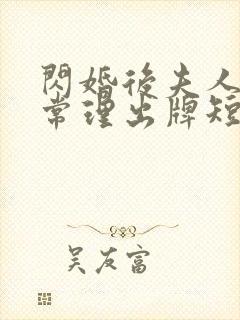 閃婚後夫人
常理出牌短
吳友富